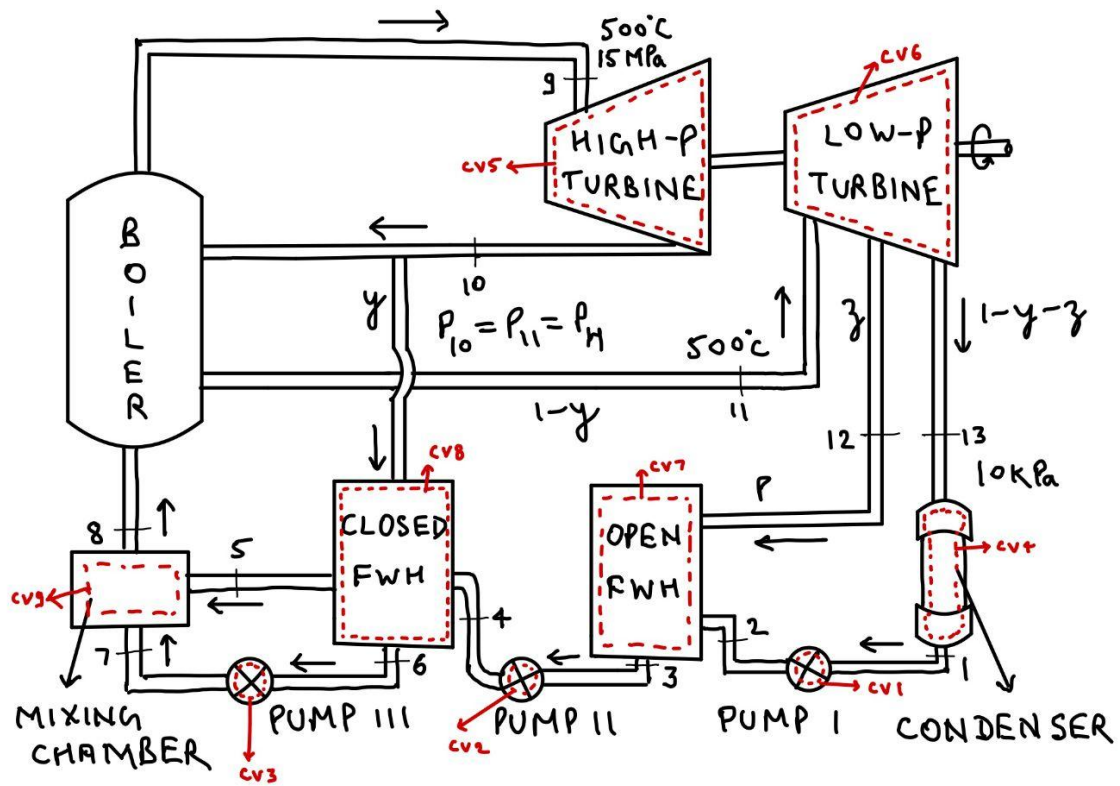 500°C
15 MPa
9
HIGH-P
TURBINE
CV5
CV6
LOW-P
TURBINE
BOILER
10
y
P10 = P11 = PH
500°C
11
1-y
z
1-y-z
12
13
10 kPa
CV8
CLOSED
FWH
CV7
OPEN
FWH
P
CV4
8
5
4
2
CV9
7
6
3
1
MIXING
CHAMBER
PUMP III
CV3
PUMP II
CV2
PUMP I
CV1
CONDENSER